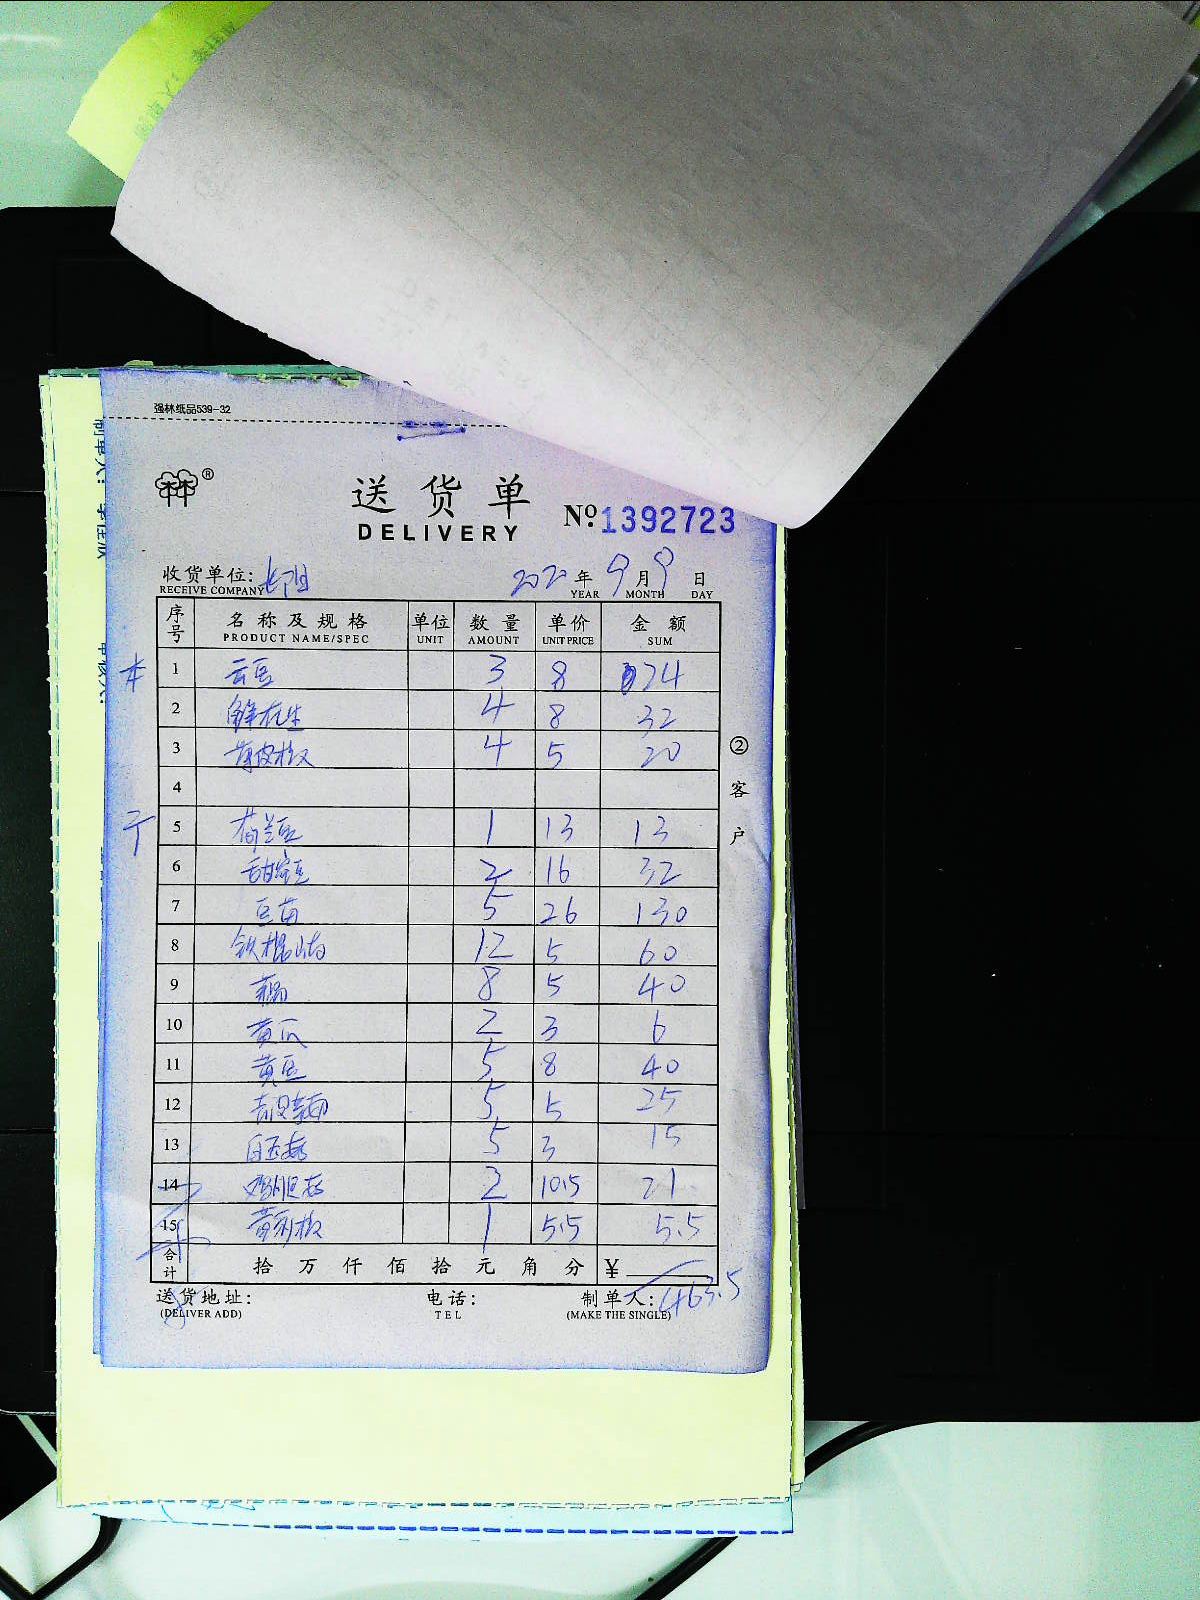 强林纸品539-32
林®
送货单 №1392723
DELIVERY
收货单位: 2020年9月9日
RECEIVE COMPANY YEAR MONTH DAY
序号 名称及规格 单位 数量 单价 金额
PRODUCT NAME/SPEC UNIT AMOUNT UNIT PRICE SUM
本 1 云豆 3 8 24
2 鲜花生 4 8 32
3 薄皮椒 4 5 20
4
于 5 荷兰豆 1 13 13
6 甜蜜豆 2 16 32
7 豆苗 5 26 130
8 铁棍山药 12 5 60
9 藕 8 5 40
10 黄瓜 2 3 6
11 黄豆 5 8 40
12 5 5 25
13 白玉菇 5 3 15
14 鸡腿菇 2 10.5 21
15 黄彩椒 1 5.5 5.5
合计 拾万仟佰拾元角分 ¥ 463.5
送货地址: 电话: 制单人:
(DELIVER ADD) TEL (MAKE THE SINGLE)
②客户